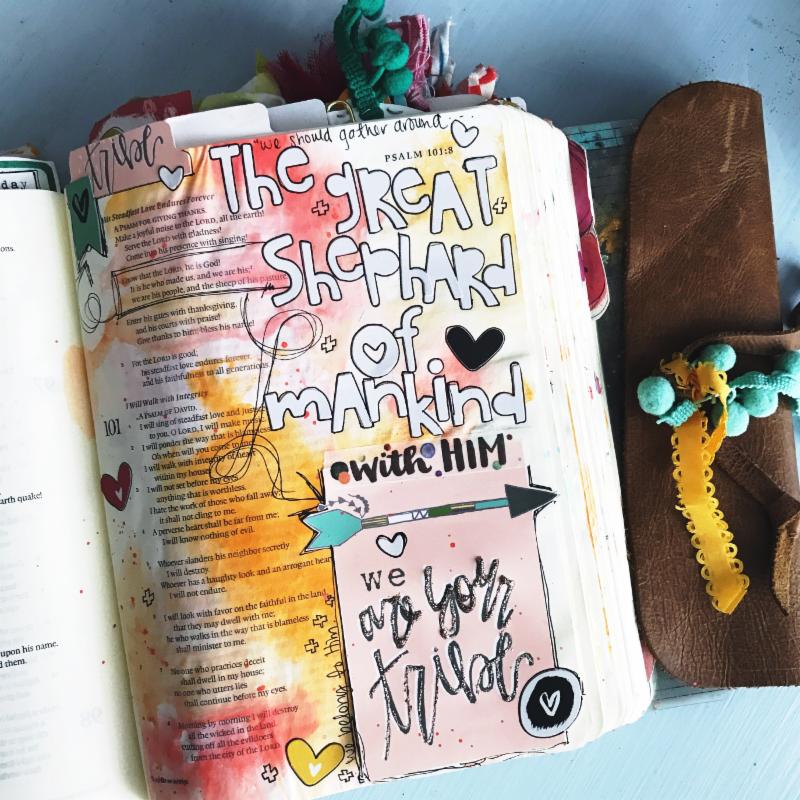 day
ons.
arth quake!
upon his name.
d them.
tribe
"we should gather around...
PSALM 101:8
The
great
Shephard
of
mankind
with HIM
we
are your
tribe
we belong to Him.
His Steadfast Love Endures Forever
A PSALM FOR GIVING THANKS.
Make a joyful noise to the LORD, all the earth!
Serve the LORD with gladness!
Come into his presence with singing!
Know that the LORD, he is God!
It is he who made us, and we are his;
we are his people, and the sheep of his pasture.
Enter his gates with thanksgiving,
and his courts with praise!
Give thanks to him; bless his name!
For the LORD is good;
his steadfast love endures forever,
and his faithfulness to all generations.
I Will Walk with Integrity
A PSALM OF DAVID.
101
I will sing of steadfast love and justice;
to you, O LORD, I will make music.
I will ponder the way that is blameless.
Oh when will you come to me?
I will walk with integrity of heart
within my house;
I will not set before my eyes
anything that is worthless.
I hate the work of those who fall away;
it shall not cling to me.
A perverse heart shall be far from me;
I will know nothing of evil.
Whoever slanders his neighbor secretly
I will destroy.
Whoever has a haughty look and an arrogant heart
I will not endure.
I will look with favor on the faithful in the land,
that they may dwell with me;
he who walks in the way that is blameless
shall minister to me.
No one who practices deceit
shall dwell in my house;
no one who utters lies
shall continue before my eyes.
Morning by morning I will destroy
all the wicked in the land,
cutting off all the evildoers
from the city of the LORD.